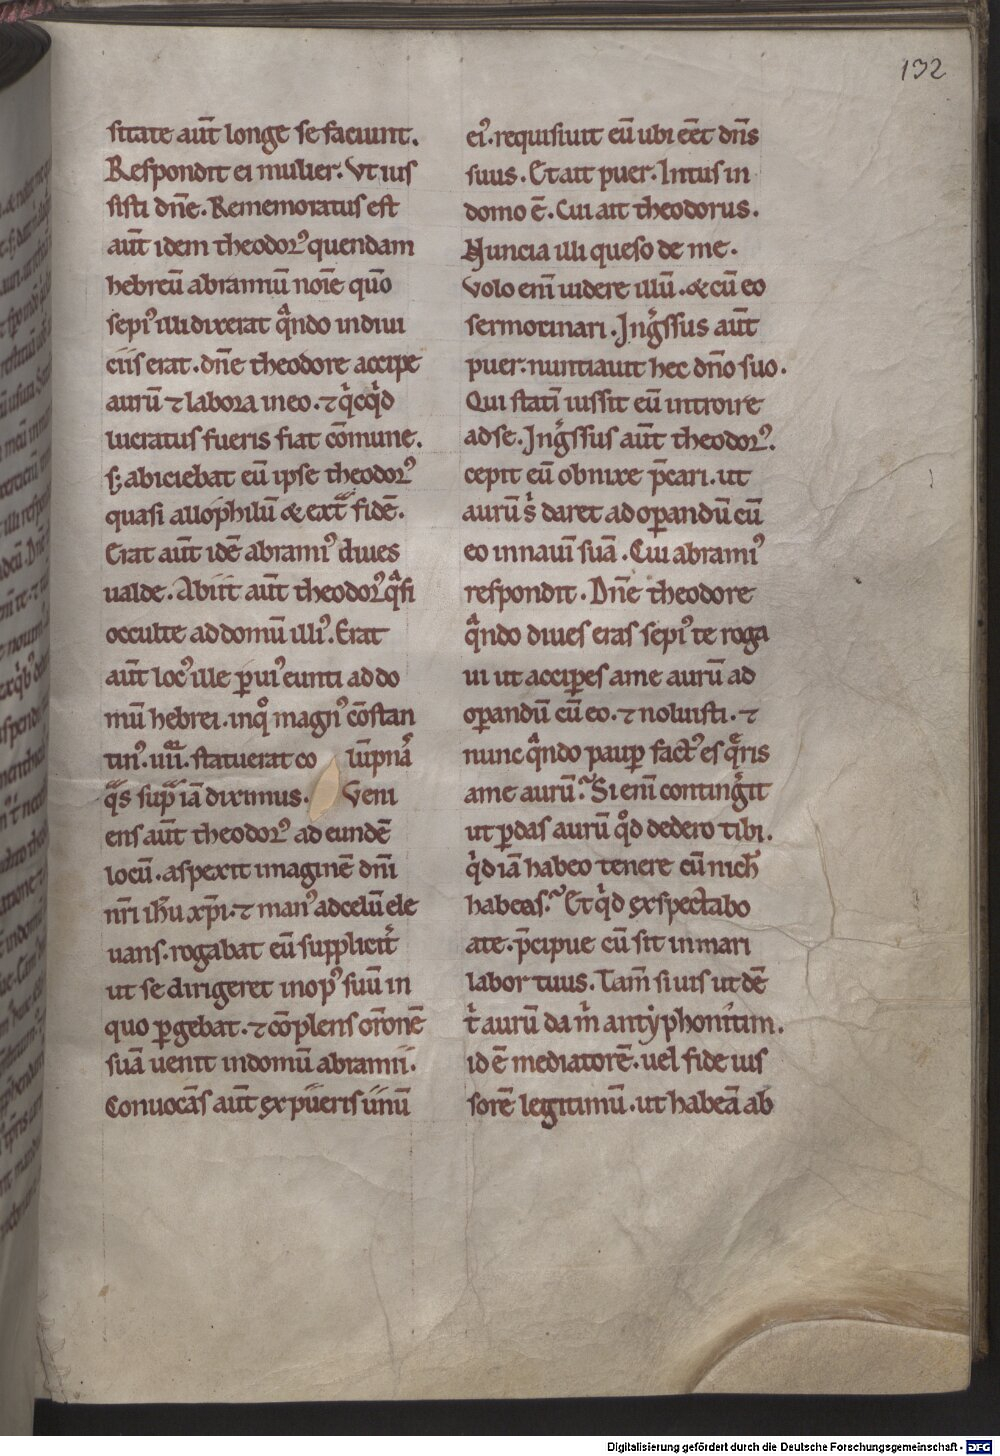 132
sitate aut̄ longe se faciunt.
Respondit ei mulier. Vt ius
sisti dn̄e. Rememoratus est
aut̄ idem theodorꝰ quendam
hebreū abramiū noīe quō
sepiꝰ illi dixerat qᵃndo in diui
ciis erat. dn̄e theodore accipe
aurū ⁊ labora in eo. ⁊ qⁱcqⁱd
lucratus fueris fiat cōmune.
s; abiciebat eū ipse theodorꝰ
quasi allophilū & ext̄ᵃ fidē.
Erat aut̄ idē abramiꝰ diues
ualde. Abiit aut̄ theodorꝰ qᵃsi
occulte ad domū illiꝰ. Erat
aut̄ locꝰ ille ꝑuiꝰ eunti ad do
mū hebrei. inqº magnꝰ cōstan
tinꝰ. iiii. statuerat co lūpnā
qᵃs supᵃ iā diximus. Veni
ens aut̄ theodorꝰ ad eundē
locū. aspexit imaginē dn̄i
nr̄i ih̄u xp̄i. ⁊ manꝰ ad celū ele
uans. rogabat eū supplicit̄
ut se dirigeret in opꝰ suū in
quo ꝑgebat. ⁊ cōplens or̄onē
suā uenit in domū abramii.
Conuocās aut̄ ex pueris unū
eiꝰ. requisiuit eū ubi eēt dn̄s
suus. Et ait puer. Intus in
domo ē. Cui ait theodorus.
Nuncia illi queso de me.
Volo enī uidere illū. & cū eo
sermocinari. Ingᵉssus aut̄
puer. nuntiauit hec dn̄o suo.
Qui statī iussit eū introire
ad se. Ingᵉssus aut̄ theodorꝰ.
cepit eū obnixe p̄cari. ut
aurū sⁱ daret ad oꝑandū cū
eo in nauī suā. Cui abramiꝰ
respondit. Dn̄e theodore
qᵃndo diues eras sepiꝰ te roga
ui ut acciꝑes a me aurū ad
oꝑandū cū eo. ⁊ noluisti. ⁊
nunc qᵃndo pauꝑ factꝰ es qᵉris
a me aurū? Si enī contingᵉit
ut ꝑdas aurū qºd dedero tibi.
qⁱd iā habeo tenere cū nich̄
habeas? Et qⁱd exspectabo
a te. p̄cipue cū sit in mari
labor tuus. Tam̄ si uis ut dē
tⁱ aurū da mⁱ antyphonitim.
id ē mediatorē. uel fide ius
sorē legitimū. ut habeā ab
Digitalisierung gefördert durch die Deutsche Forschungsgemeinschaft - DFG